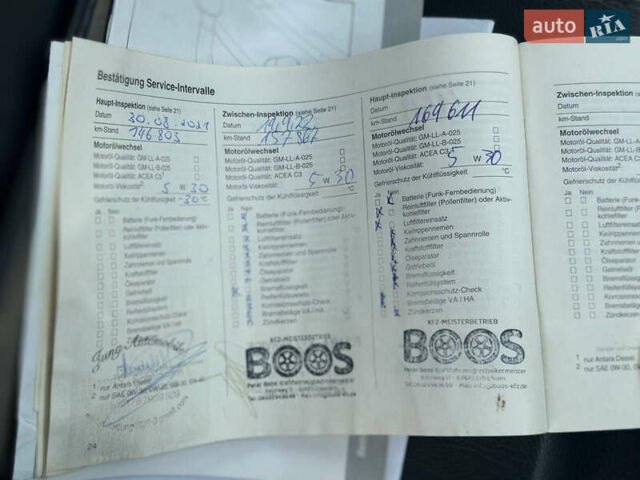 auto RIA
Bestätigung Service-Intervalle
Haupt-Inspektion (siehe Seite 21)
Datum 30.08.2021
km-Stand 146803
Motorölwechsel
Motoröl-Qualität: GM-LL-A-025
Motoröl-Qualität: GM-LL-B-025
Motoröl-Qualität: ACEA C3
Motoröl-Viskosität² 5 W 30
Gefrierschutz der Kühlflüssigkeit -30°C
Ja Nein
Batterie (Funk-Fernbedienung)
Reinluftfilter (Pollenfilter) oder Aktiv-
kohlefilter
Luftfiltereinsatz
Keilrippenriemen
Zahnriemen und Spannrolle
Kraftstofffilter
Ölseparator
Getriebeöl
Bremsflüssigkeit
Reifenfüllsystem
Korrosionsschutz-Check
Bremsbeläge VA / HA
Zündkerzen
1 nur Antara Diesel
24
Zwischen-Inspektion (siehe Seite 21)
Datum
km-Stand
Motorölwechsel
Motoröl-Qualität: GM-LL-A-025
Motoröl-Qualität: GM-LL-B-025
Motoröl-Qualität: ACEA C3
Motoröl-Viskosität: 5 W 30
Gefrierschutz der Kühlflüssigkeit °C
Ja Nein
Batterie (Funk-Fernbedienung)
Reinluftfilter (Pollenfilter) oder Aktiv-
kohlefilter
Luftfiltereinsatz
Keilrippenriemen
Zahnriemen und Spannrolle
Kraftstofffilter
Ölseparator
Getriebeöl
Bremsflüssigkeit
Reifenfüllsystem
Korrosionsschutz-Check
Bremsbeläge VA / HA
Zündkerzen
KFZ-MEISTERBETRIEB
BOOS
Haupt-Inspektion (siehe Seite 21)
Datum
km-Stand 169611
Motorölwechsel
Motoröl-Qualität: GM-LL-A-025
Motoröl-Qualität: GM-LL-B-025
Motoröl-Qualität: ACEA C3
Motoröl-Viskosität: 5 W 30
Gefrierschutz der Kühlflüssigkeit °C
Ja Nein
Batterie (Funk-Fernbedienung)
Reinluftfilter (Pollenfilter) oder Aktiv-
kohlefilter
Luftfiltereinsatz
Keilrippenriemen
Zahnriemen und Spannrolle
Kraftstofffilter
Ölseparator
Getriebeöl
Bremsflüssigkeit
Reifenfüllsystem
Korrosionsschutz-Check
Bremsbeläge VA / HA
Zündkerzen
KFZ-MEISTERBETRIEB
BOOS
Zwischen-Inspektion
Datum
km-Stand
Motorölwechsel
Motoröl-Qualität: GM-LL
Motoröl-Qualität: GM-LL
Motoröl-Qualität: ACEA
Motoröl-Viskosität:
Gefrierschutz der Kühlfl
Ja Nein
Batterie (Fun
Reinluftfilter
kohlefilter
Luftfiltereins
Keilrippenrie
Zahnriemen
Kraftstofffilte
Ölseparator
Getriebeöl
Bremsflüssig
Reifenfüllsys
Korrosionssc
Bremsbeläge
Zündkerzen
1 nur Antara Diesel